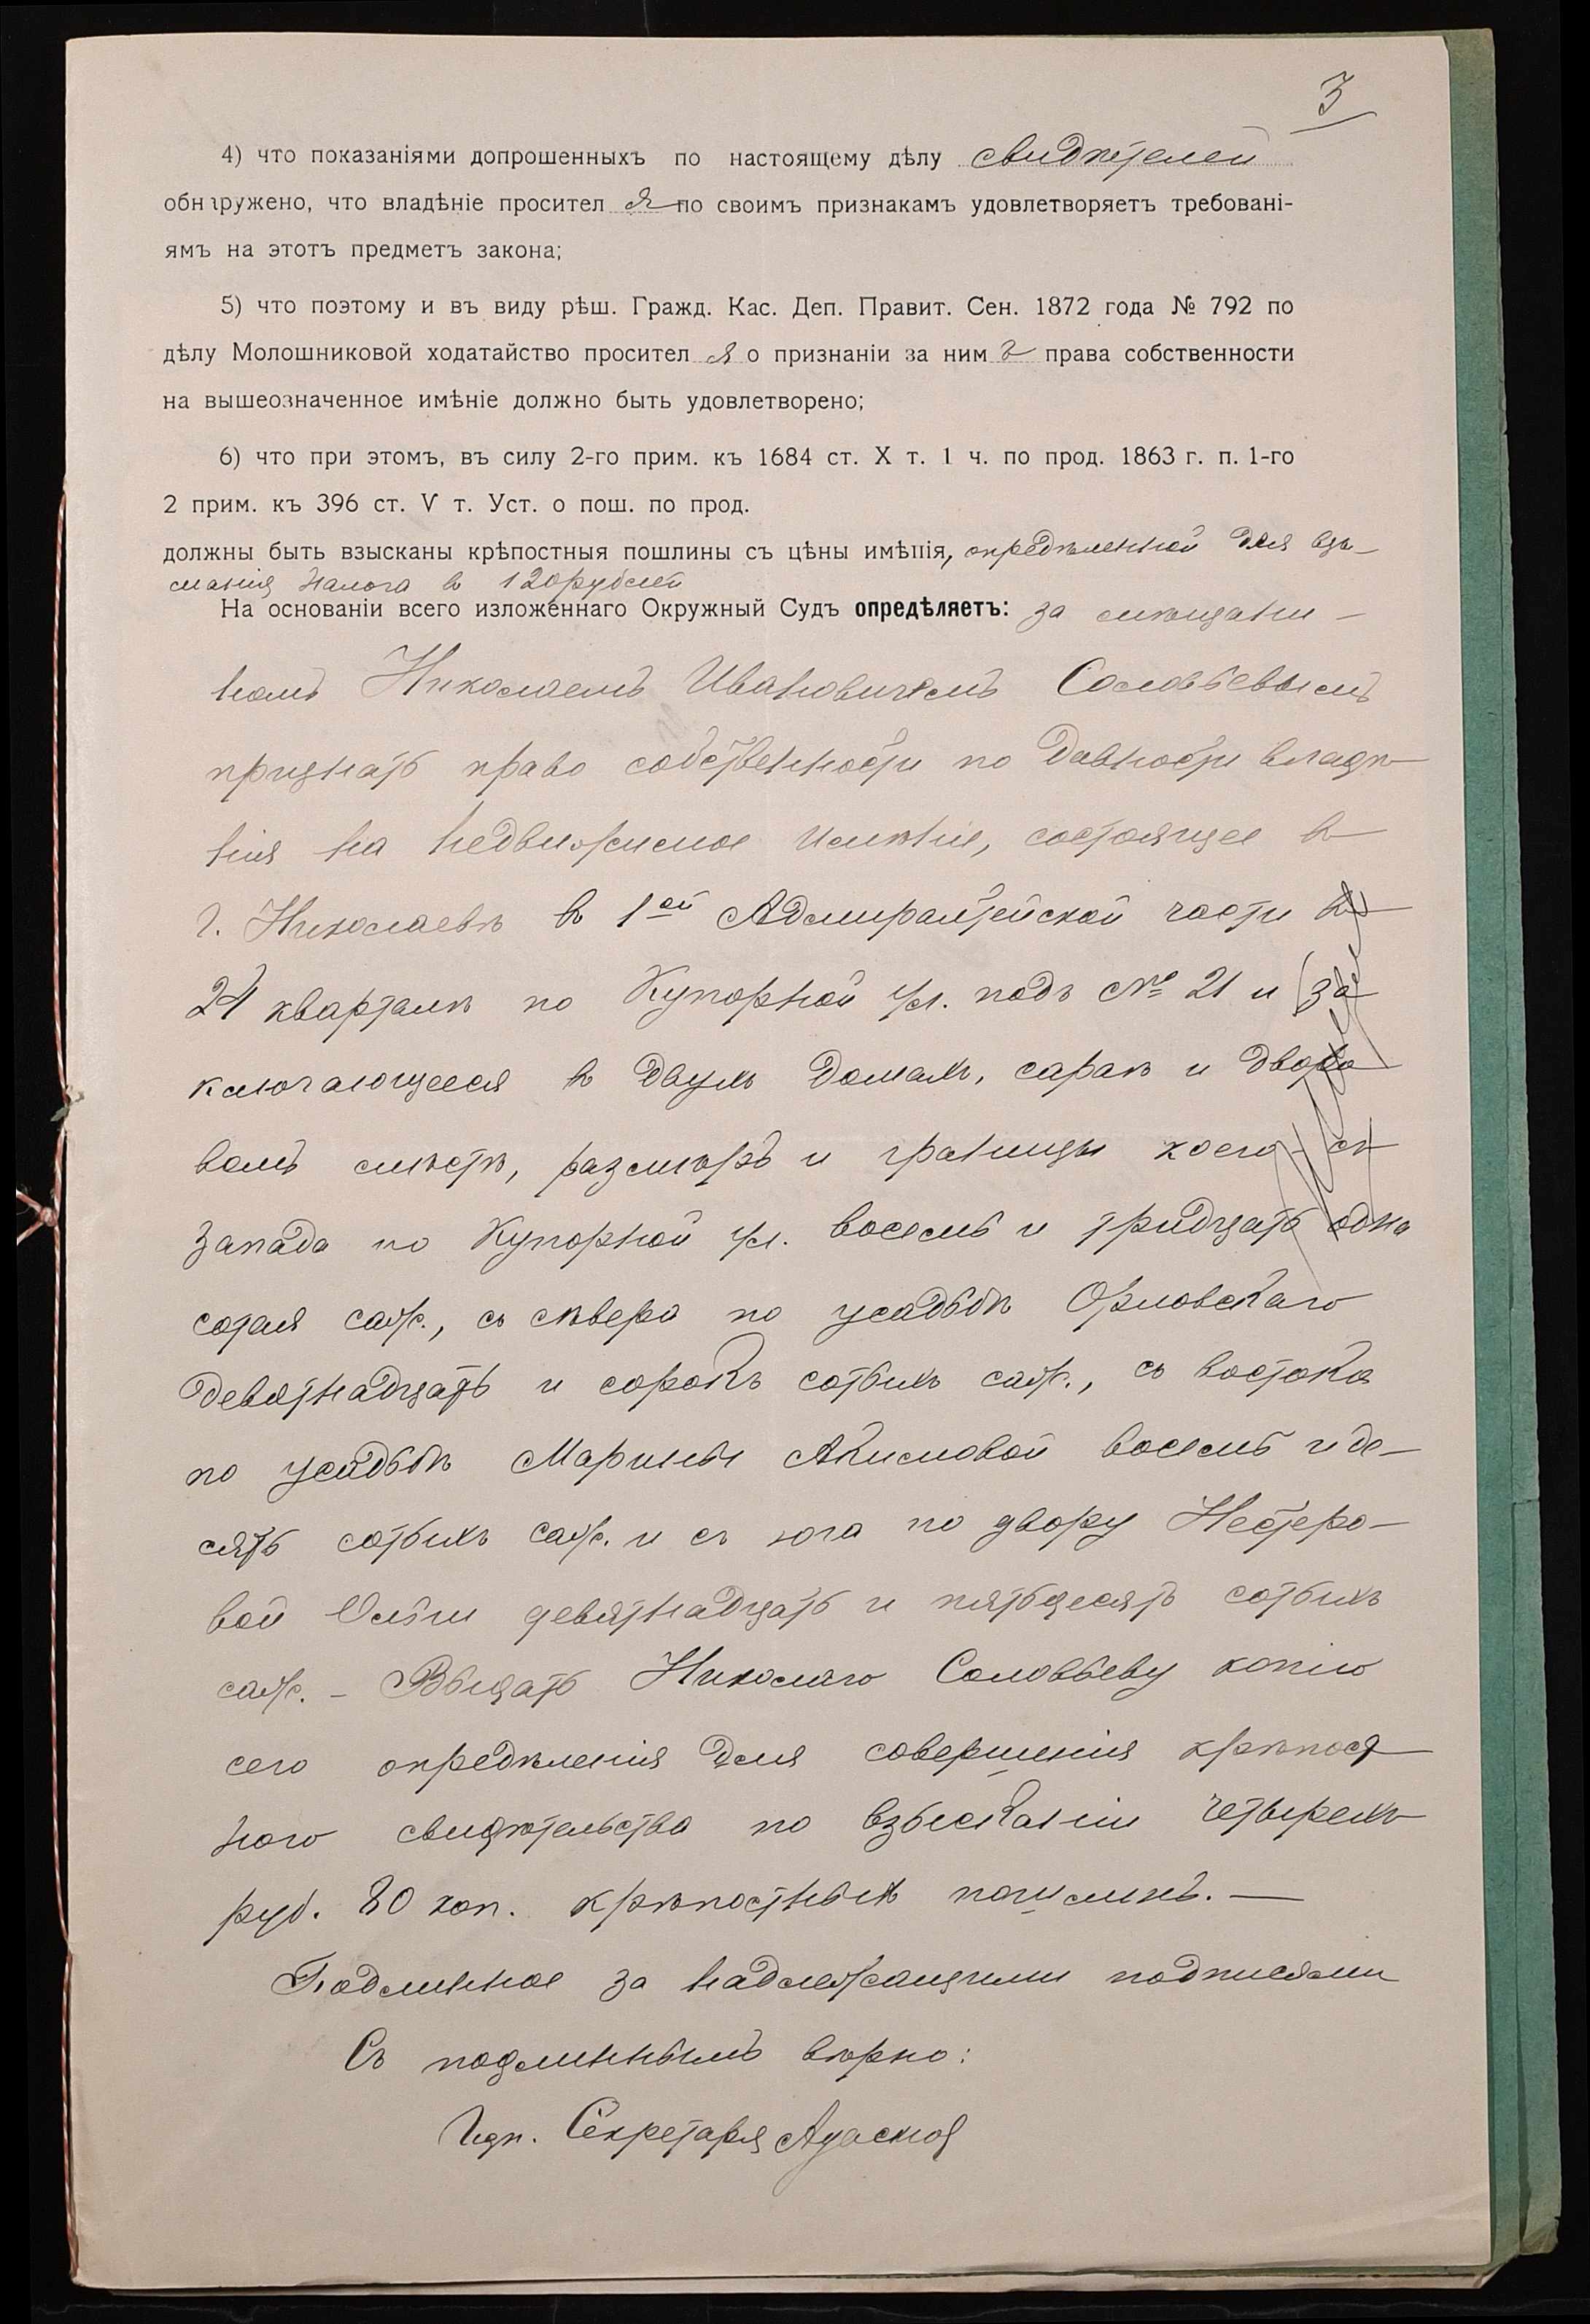 3
4) что показаніями допрошенныхъ по настоящему дѣлу свидѣтелей
обнаружено, что владѣніе просителя по своимъ признакамъ удовлетворяетъ требовані-
ямъ на этотъ предметъ закона;
5) что поэтому и въ виду рѣш. Гражд. Кас. Деп. Правит. Сен. 1872 года № 792 по
дѣлу Молошниковой ходатайство просителя о признаніи за нимъ права собственности
на вышеозначенное имѣніе должно быть удовлетворено;
6) что при этомъ, въ силу 2-го прим. къ 1684 ст. X т. 1 ч. по прод. 1863 г. п. 1-го
2 прим. къ 396 ст. V т. Уст. о пош. по прод.
должны быть взысканы крѣпостныя пошлины съ цѣны имѣнія, опредѣленной для взи-
манія налога в 120 рублей
На основаніи всего изложеннаго Окружный Судъ опредѣляетъ: за мѣщани-
номъ Николаемъ Ивановичемъ Соловьевымъ
признать право собственности по давности владѣ-
нія на недвижимое имѣніе, состоящее въ
г. Николаевѣ въ 1ой Адмиралтейской части въ
24 кварталѣ по Купорной ул. подъ № 21 и за-
ключающееся въ двухъ домахъ, сараѣ и дворо-
вомъ мѣстѣ, размѣръ и границы коего: съ
запада по Купорной ул. восемь и тридцать одна
сотая саж., съ сѣвера по усадьбѣ Орловскаго
девятнадцать и сорокъ сотыхъ саж., съ востока
по усадьбѣ Марины Акимовой восемь и де-
сять сотыхъ саж. и съ юга по двору Нестеро-
вой девятнадцать и пятьдесятъ сотыхъ
саж. – Выдать Николаю Соловьеву копію
сего опредѣленія для совершенія крѣпост-
ного свидѣтельства по взысканіи четырехъ
руб. 80 коп. крѣпостныхъ пошлинъ. —
Подлинное за надлежащими подписями
Съ подлиннымъ вѣрно:
Секретаря